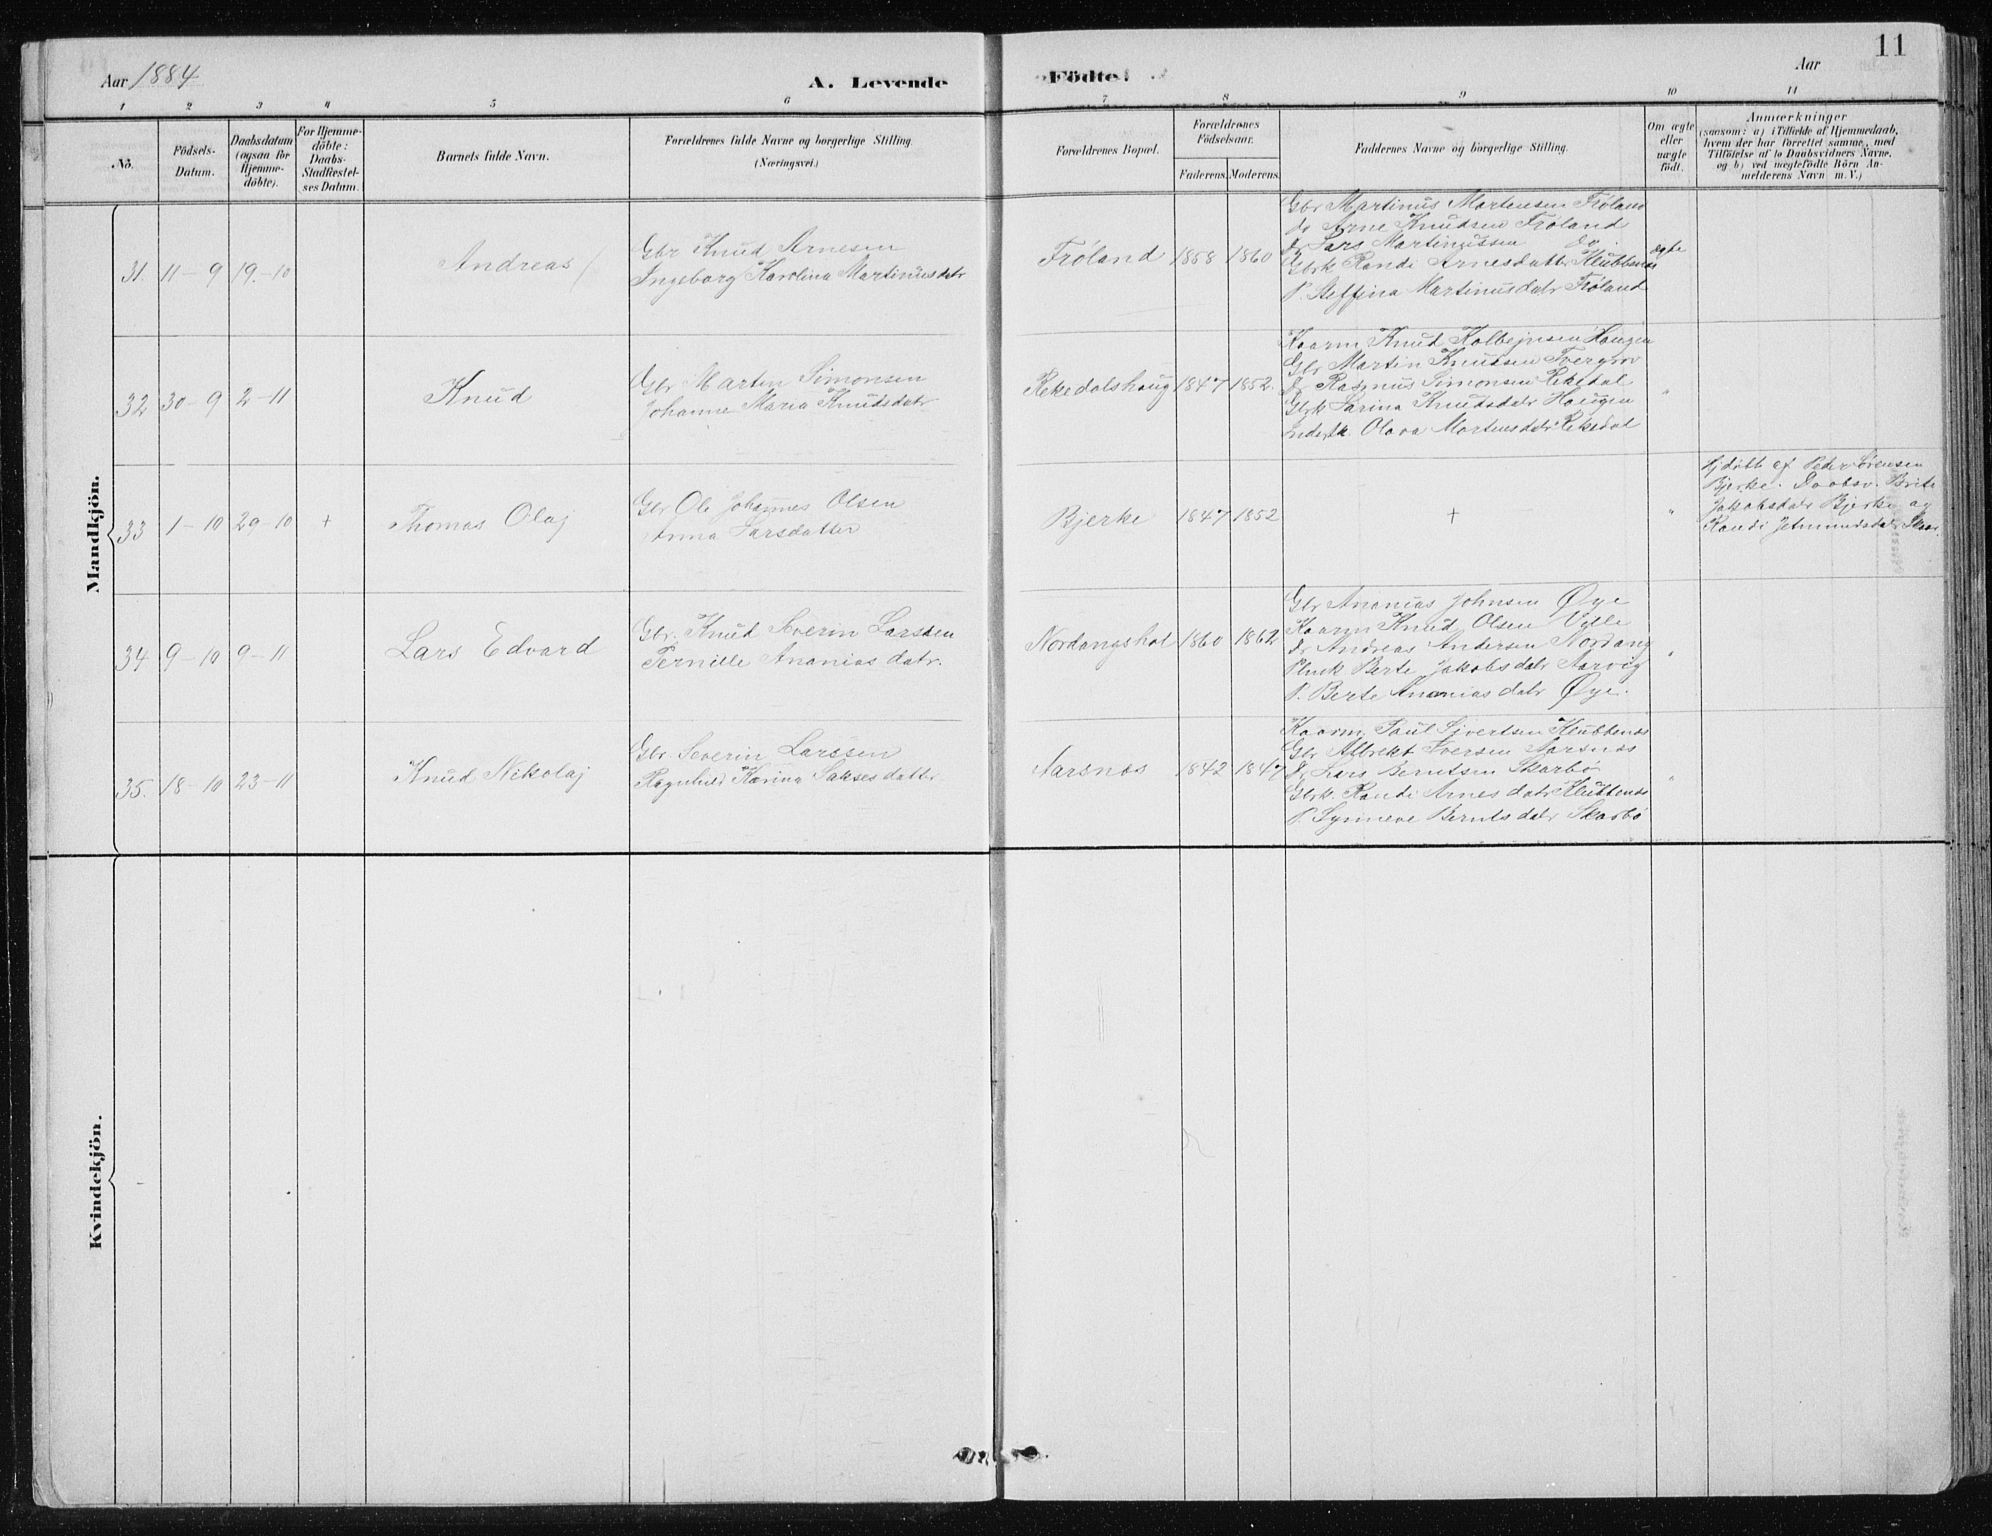 11
Aar 1884
A. Levende
Födte.
Aar
1 2 3 4 5 6 7 8 9 10 11
No.
Födsels-
Datum.
Daabsdatum
(ogsaa for
Hjemme-
döbte).
For Hjemme-
döbte:
Daabs-
Stadfæstel-
ses Datum.
Barnets fulde Navn.
Forældrenes fulde Navne og borgerlige Stilling
(Næringsvei.)
Forældrenes Bopæl.
Forældrenes
Födselsaar.
Faderens. Moderens.
Faddernes Navne og borgerlige Stilling.
Om ægte
eller
uægte
födt.
Anmærkninger
(saasom: a) i Tilfælde af Hjemmedaab,
hvem der har forrettet samme, med
Tilföielse af to Daabsvidners Navne,
og b) ved uægtefödte Börn An-
melderens Navn m. V.)
Mandkjön.
31. 11-9 19.-10
Andreas
Gbr Knud Arnesen
Ingeborg Karolina Martinusdatr
Frøland
1858 1860
Gbr Martinus Martensen Frøland
do Arne Knudsen Frøland
dr Lars Martinussen do.
Gbrk Randi Arnesdatter Klubbenæs
P. Steffina Martinusdatr Frøland
ægte
32 30-9 2-11
Knud
Gbr Marten Simonsen
Johanne Maria Knudsdatr
Rekedalshaug
1847 1852.
Kaarm Knud Kolbejnsen Haugen
Gbr Martin Knudsen
dr Rasmus Simonsen Rekedal
Gbrk Karina Knudsdatr Haugen
Olava Martensdatr Rekedal
"
33 1-10 29-10 +
Thomas Olaj
Gbr Ole Johannes Olsen
Anna Larsdatter
Bjerke
1847 1852
+
"
Hjdøbt af Peder Sørensen
Bjerke. Daabsv. Brite
Jakobsdatr Bjerke og
Randi Jetmundsdatr
34 9-10 9-11
Lars Edvard
Gbr. Knud Severin Larssen
Pernille Ananiasdatr.
Nordangshol
1860 1862
Gbr Ananias Johnsen Øye
Kaarm Knud Olsen Ville
dr Andreas Andersen Nordang
Berte Jakobsdatr Aarvig
P. Berte Ananiasdatr Øye.
"
35. 18-10 23-11
Knud Nikolaj
Gbr Severin Larssen
Ragnhild Karina Saksesdattr
Aarsnes
1842 1847
Kaarm Paul Sivertsen Klubbenæs
Gbr Albrekt Iversen Aarsnæs
dr Lars Berntsen Skarbø
Gbrk. Randi Arnesdatr Klubbenæs
P. Synneve Berntsdatr Skarbø
"
Kvindekjön.